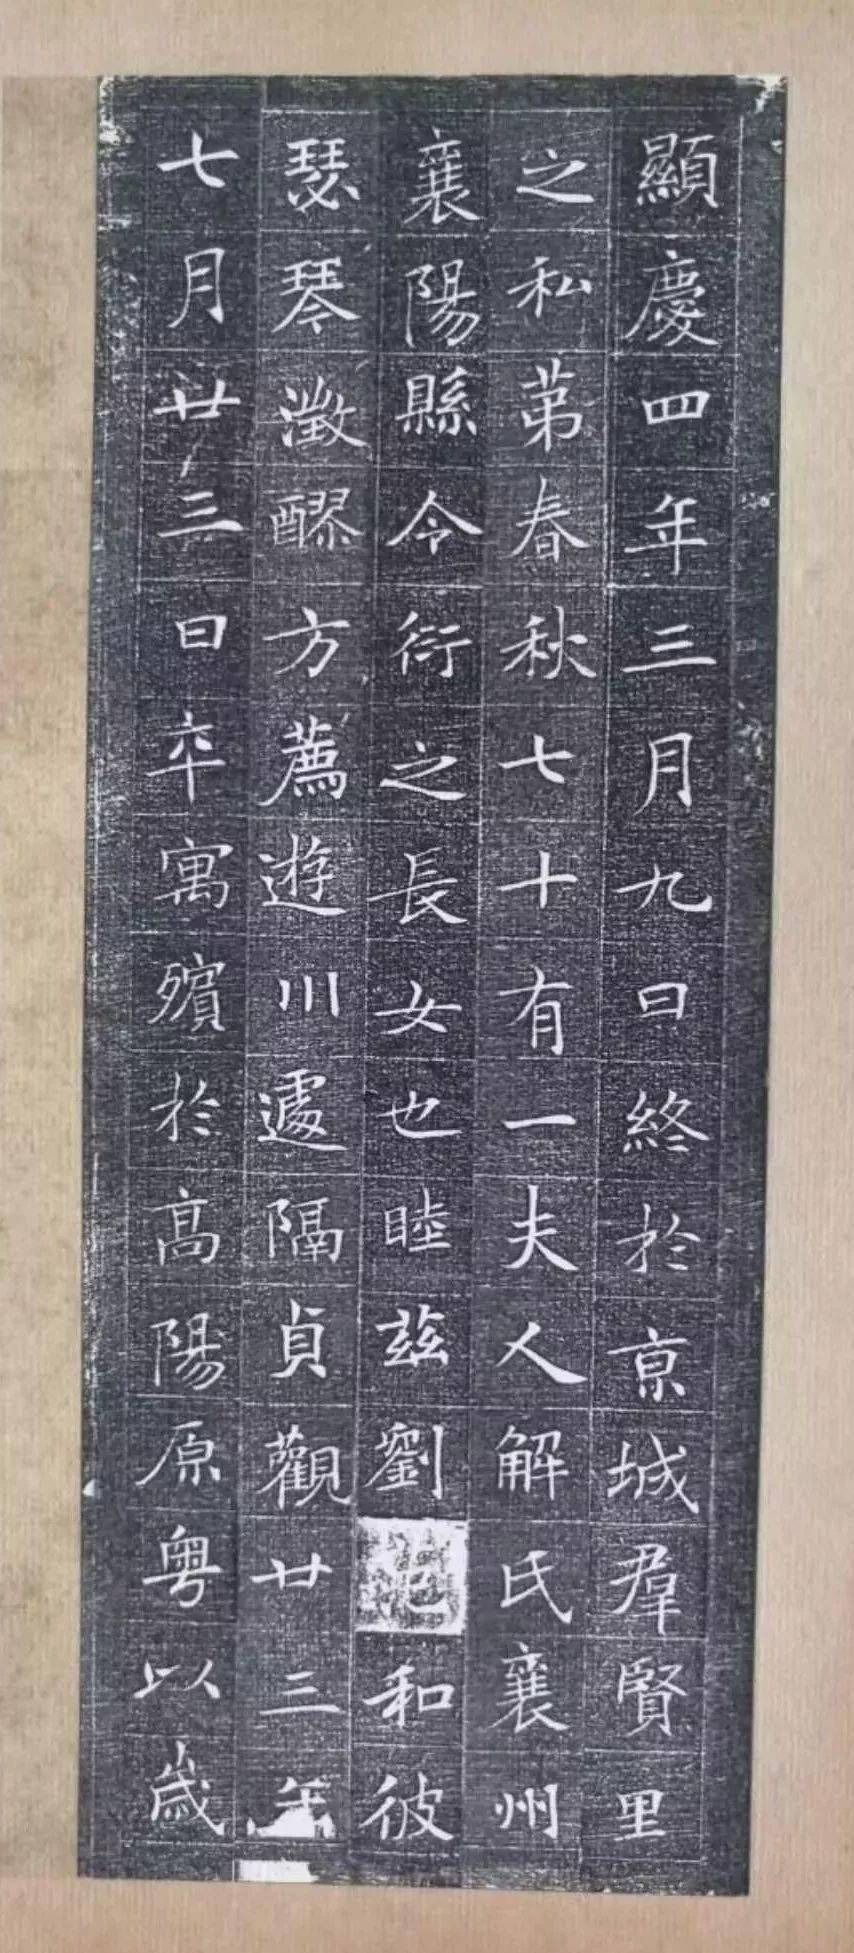 顯慶四年三月九日終於京城群賢里
之私苐春秋七十有一夫人解氏襄州
襄陽縣令衍之長女也睦茲劉和彼
瑟琴澂醪方薦遊川遽隔貞觀廿三年
七月廿三日卒寓殯於高陽原粵以歲